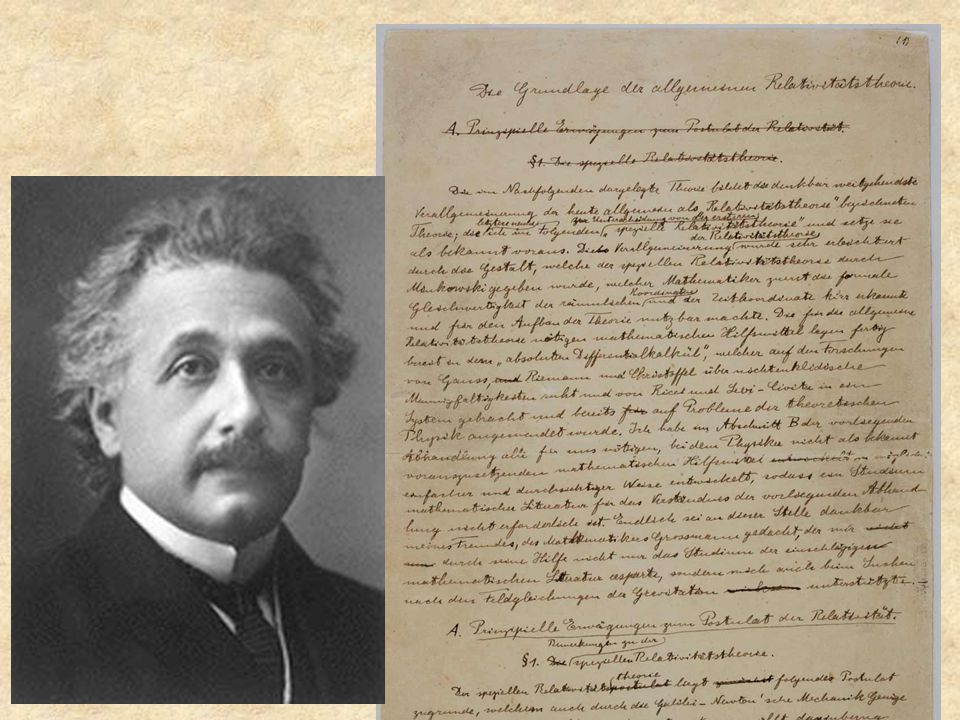 (1)
Die Grundlage der allgemeinen Relativitätstheorie.
A. Prinzipielle Erwägungen zum Postulat der Relativität.
§1. Die spezielle Relativitätstheorie.
Die im Nachfolgenden dargelegte Theorie bildet die denkbar weitgehendste
Verallgemeinerung der heute allgemein als „Relativitätstheorie" bezeichneten
letztere zur Unterscheidung von der ersteren
Theorie; die ich im Folgenden „spezielle Relativitätstheorie" und setze sie
der Relativitätstheorie
als bekannt voraus. Die Verallgemeinerung wurde sehr erleichtert
durch die Gestalt, welche der speziellen Relativitätstheorie durch
Minkowski gegeben wurde, welcher Mathematiker zuerst die formale
Koordinaten
Gleichwertigkeit der räumlichen und der Zeitkoordinate klar erkannte
und für den Aufbau der Theorie nutzbar machte. Die für die allgemeine
Relativitätstheorie nötigen mathematischen Hilfsmittel lagen fertig
bereit in dem „absoluten Differentialkalkül", welcher auf den Forschungen
von Gauss, und Riemann und Christoffel über nichteuklidische
Mannigfaltigkeiten ruht und von Ricci und Levi-Civita in ein
System gebracht und bereits für auf Probleme der theoretischen
Physik angewendet wurde. Ich habe im Abschnitt B der vorliegenden
Abhandlung alle für uns nötigen, bei dem Physiker nicht als bekannt
vorauszusetzenden mathematischen Hilfsmittel entwickelt in möglichst
einfacher und durchsichtiger Weise entwickelt, sodass ein Studium
mathematischer Literatur für das Verständnis der vorliegenden Abhand
lung nicht erforderlich ist. Endlich sei an dieser Stelle dankbar
meines Freundes, des Mathematikers Grossmann gedacht, der mir nicht
durch seine Hilfe nicht nur das Studium der einschlägigen
mathematischen Literatur ersparte, sondern mich auch beim Suchen
nach den Feldgleichungen der Gravitation unterstützte.
A. Prinzipielle Erwägungen zum Postulat der Relativität.
Bemerkungen zu der
§1. Die speziellen Relativitätstheorie.
theorie
Der speziellen Relativitätspostulat liegt zunächst folgendes Postulat
zugrunde, welchem auch durch die Galilei-Newton'sche Mechanik Genüge